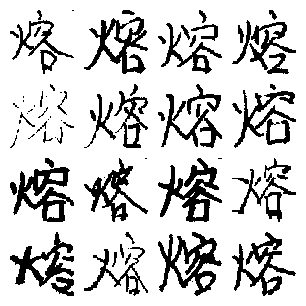 熔熔熔熔
熔熔熔熔
熔熔熔熔
熔熔熔熔